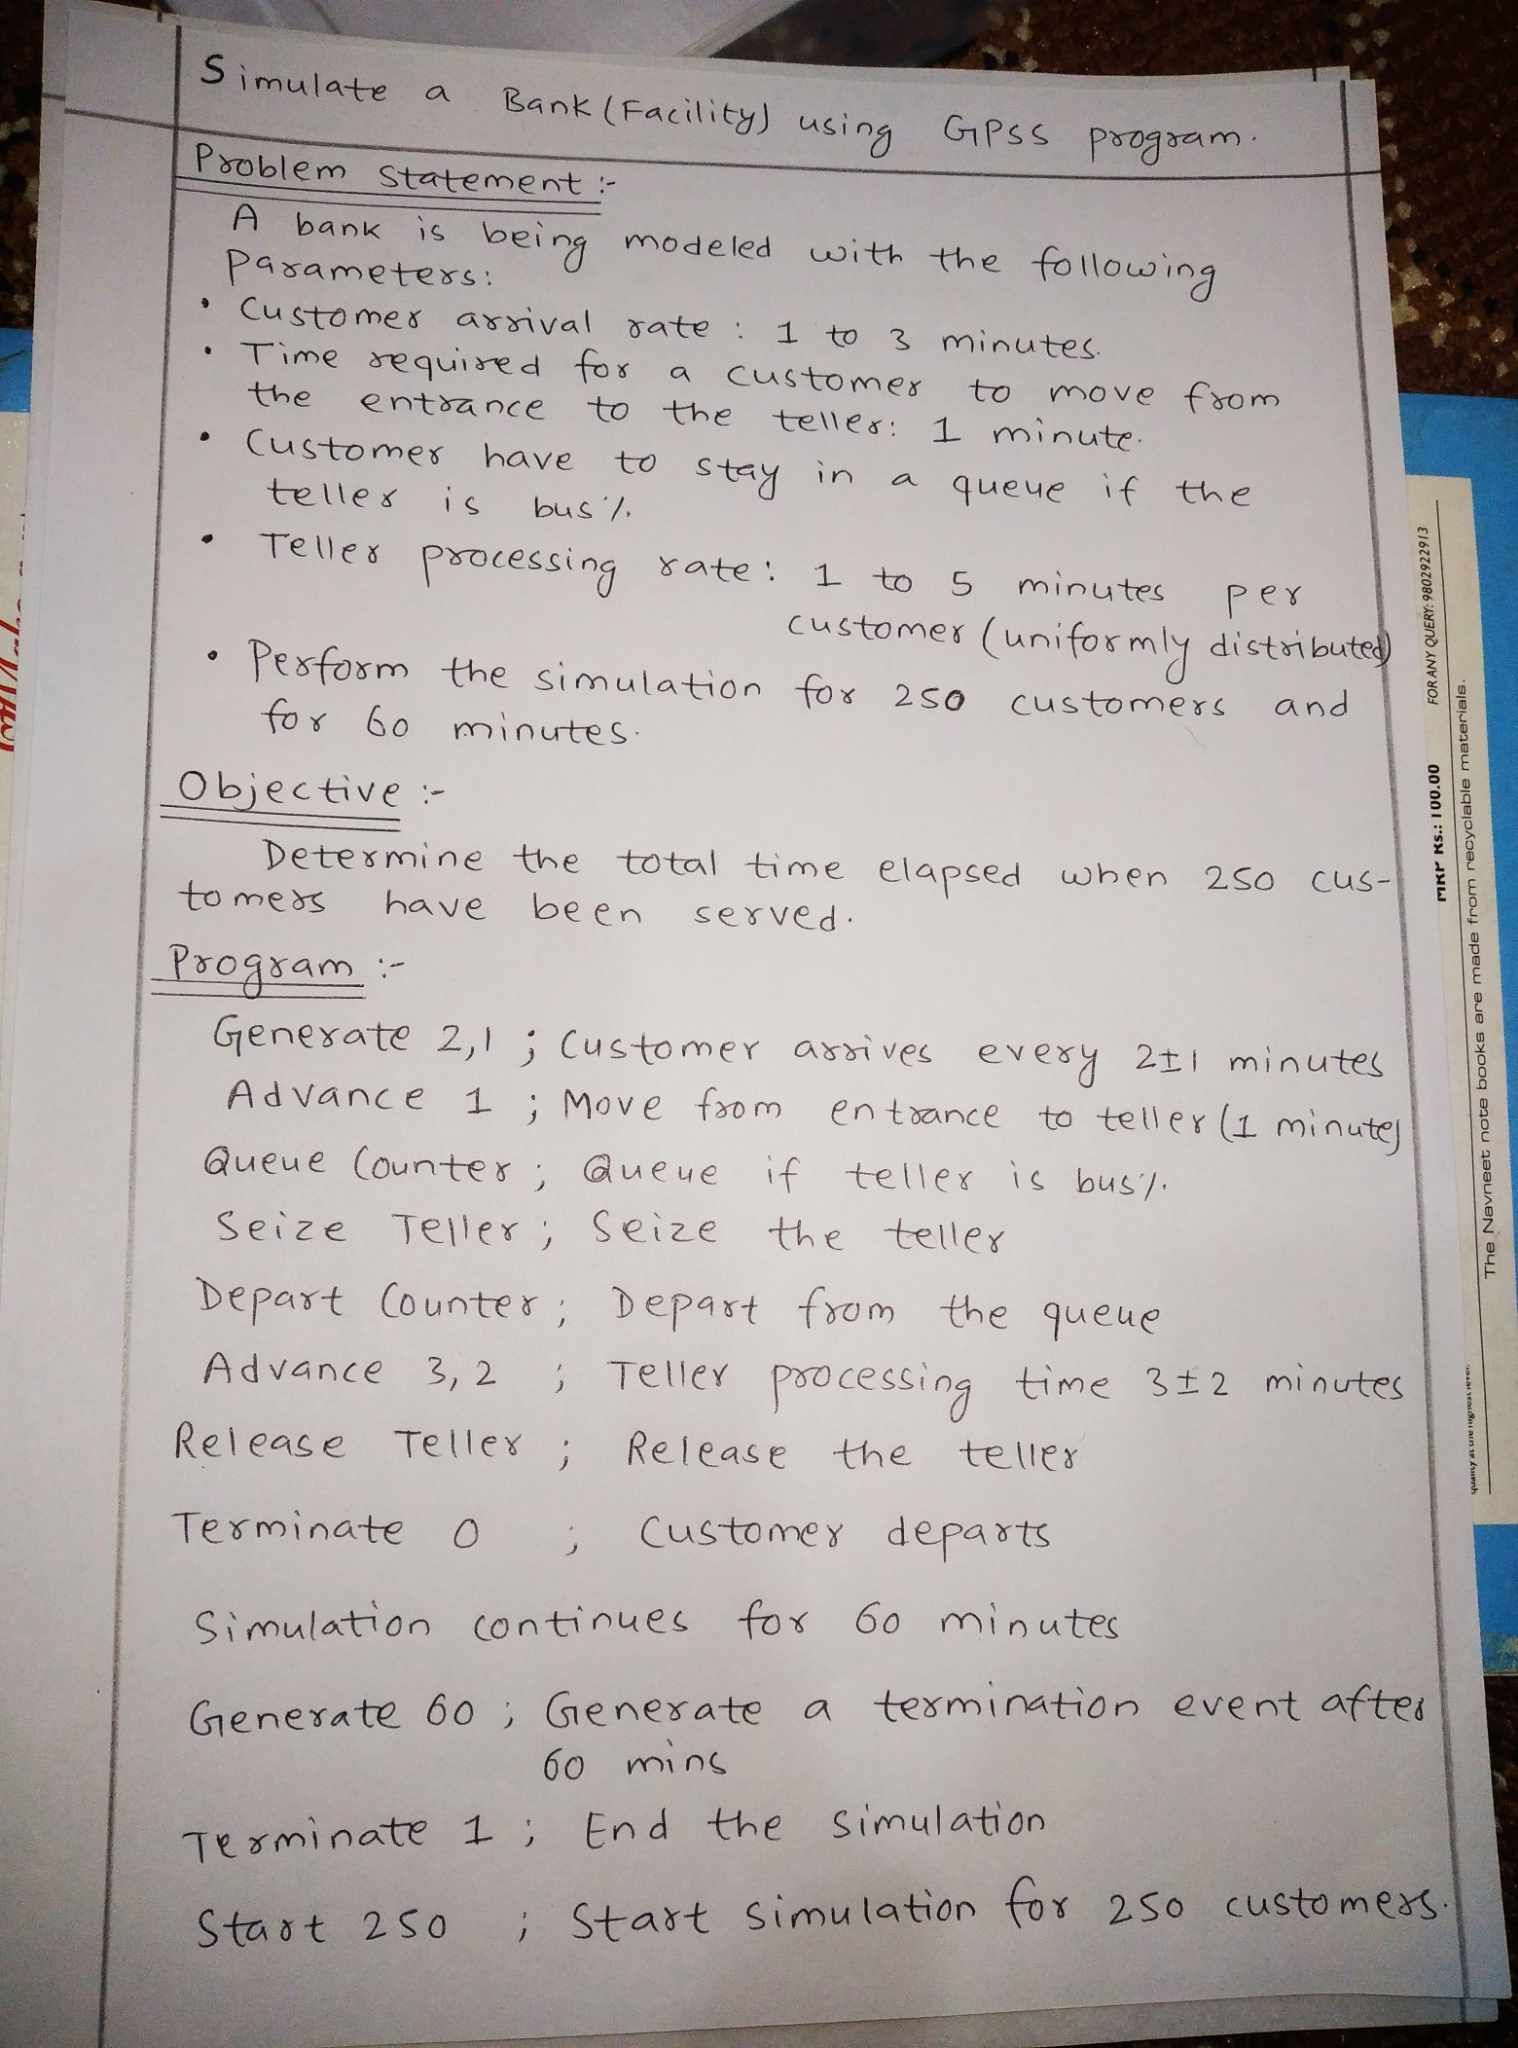 Simulate a Bank (Facility) using GPSS program.
Problem statement :-
A bank is being modeled with the following
Parameters:
• Customer arrival rate : 1 to 3 minutes.
• Time required for a customer to move from
the entrance to the teller: 1 minute.
• Customer have to stay in a queue if the
teller is busy.
• Teller processing rate: 1 to 5 minutes per
customer (uniformly distributed)
• Perform the simulation for 250 customers and
for 60 minutes.
Objective :-
Determine the total time elapsed when 250 cus-
tomers have been served.
Program :-
Generate 2,1 ; Customer arrives every 2±1 minutes
Advance 1 ; Move from entrance to teller (1 minute)
Queue Counter ; Queue if teller is busy.
Seize Teller ; Seize the teller
Depart Counter ; Depart from the queue
Advance 3,2 ; Teller processing time 3±2 minutes
Release Teller ; Release the teller
Terminate 0 ; Customer departs
Simulation continues for 60 minutes
Generate 60 ; Generate a termination event after
60 mins
Terminate 1 ; End the simulation
Start 250 ; Start simulation for 250 customers.
MRP Rs.: 100.00 FOR ANY QUERY: 9802922913
The Navneet note books are made from recyclable materials.